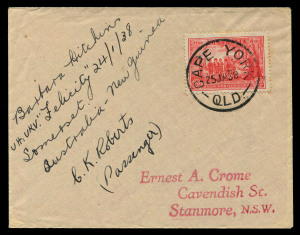 Barbara Hitchins
VH.UKV. "Felicity" 24/1/38
Somerset
Australia - New Guinea
C. K. Roberts
(Passenger)
CAPE YORK
25JA38
QLD
Ernest A. Crome
Cavendish St.
Stanmore, N.S.W.